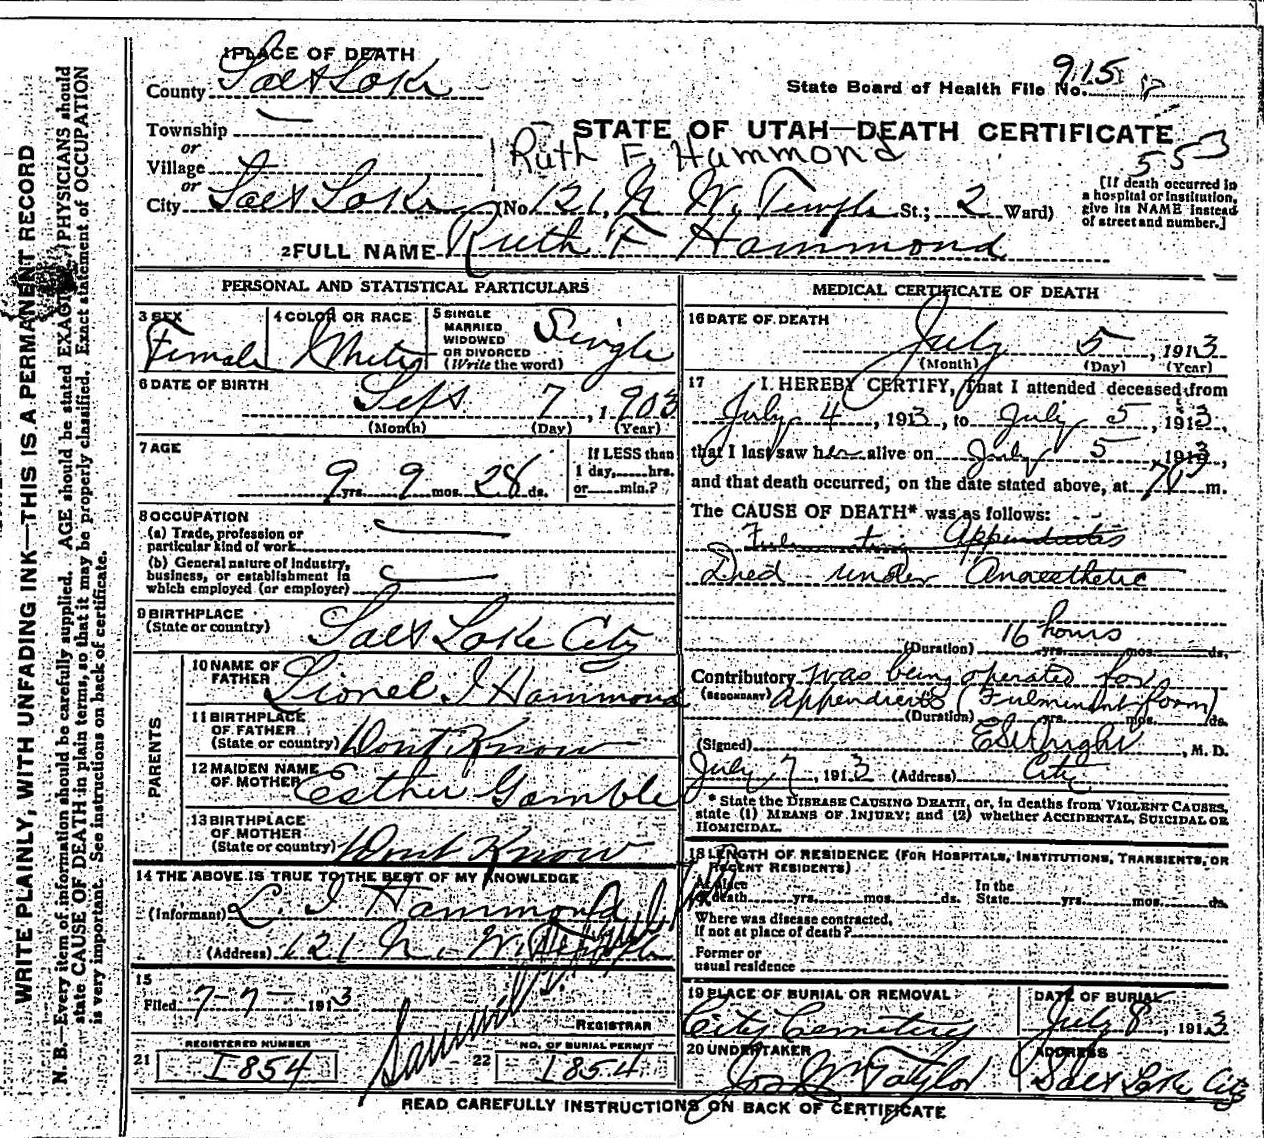 1 PLACE OF DEATH
County Salt Lake
State Board of Health File No. 915
Township
or
Village
or
City Salt Lake
STATE OF UTAH—DEATH CERTIFICATE
Ruth F. Hammond
553
(No 121, N. W. Temple St.; 2 Ward)
[If death occurred in
a hospital or institution,
give its NAME instead
of street and number.]
2 FULL NAME Ruth F Hammond
PERSONAL AND STATISTICAL PARTICULARS
3 SEX
Female
4 COLOR OR RACE
White
5 SINGLE
MARRIED
WIDOWED
OR DIVORCED
(Write the word)
Single
6 DATE OF BIRTH
Sept 7, 1903
(Month) (Day) (Year)
7 AGE
9 yrs. 9 mos. 28 ds.
If LESS than
1 day,......hrs.
or......min.?
8 OCCUPATION
(a) Trade, profession or
particular kind of work
(b) General nature of industry,
business, or establishment in
which employed (or employer)
9 BIRTHPLACE
(State or country)
Salt Lake City
PARENTS
10 NAME OF
FATHER
Lionel I Hammond
11 BIRTHPLACE
OF FATHER
(State or country)
Dont Know
12 MAIDEN NAME
OF MOTHER
Esther Gamble
13 BIRTHPLACE
OF MOTHER
(State or country)
Dont Know
14 THE ABOVE IS TRUE TO THE BEST OF MY KNOWLEDGE
(Informant) L I Hammond
(Address) 121 N. W. Temple
15
Filed 7-7- 1913
REGISTRAR
21
REGISTERED NUMBER
I854
22
NO. OF BURIAL PERMIT
I854
MEDICAL CERTIFICATE OF DEATH
16 DATE OF DEATH
July 5, 1913
(Month) (Day) (Year)
17 I HEREBY CERTIFY, that I attended deceased from
July 4, 1913, to July 5, 1913,
that I last saw her alive on July 5 1913,
and that death occurred, on the date stated above, at m.
The CAUSE OF DEATH* was as follows:
Appendicitis
Died under Anaesthetic
16 hours
(Duration) yrs. mos. ds.
Contributory was being operated for
(SECONDARY) Appendicitis (Fulminant form)
(Duration) yrs. mos. ds.
(Signed) E S Wright, M. D.
July 7, 1913 (Address) City
* State the DISEASE CAUSING DEATH, or, in deaths from VIOLENT CAUSES,
state (1) MEANS OF INJURY; and (2) whether ACCIDENTAL, SUICIDAL OR
HOMICIDAL.
18 LENGTH OF RESIDENCE (FOR HOSPITALS, INSTITUTIONS, TRANSIENTS, OR
RECENT RESIDENTS)
At place
of death yrs. mos. ds.
In the
State yrs. mos. ds.
Where was disease contracted,
if not at place of death?
Former or
usual residence
19 PLACE OF BURIAL OR REMOVAL
City Cemetery
DATE OF BURIAL
July 8, 1913
20 UNDERTAKER
Jos Wm Taylor
ADDRESS
Salt Lake City
READ CAREFULLY INSTRUCTIONS ON BACK OF CERTIFICATE
WRITE PLAINLY, WITH UNFADING INK—THIS IS A PERMANENT RECORD
N. B.—Every item of information should be carefully supplied. AGE should be stated EXACTLY. PHYSICIANS should
state CAUSE OF DEATH in plain terms, so that it may be properly classified. Exact statement of OCCUPATION
is very important. See instructions on back of certificate.